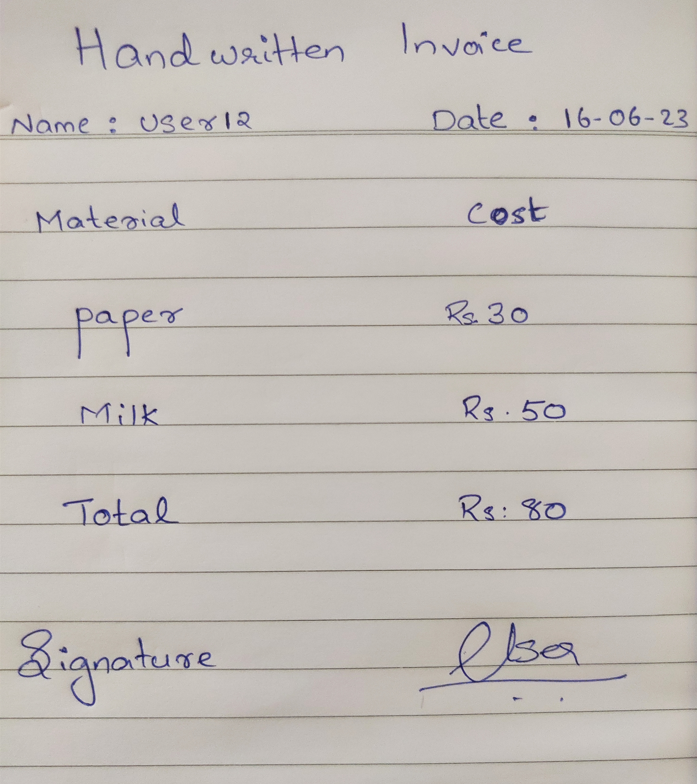 Handwritten Invoice
Name : User12 Date : 16-06-23
Material Cost
paper Rs. 30
Milk Rs. 50
Total Rs: 80
Signature User